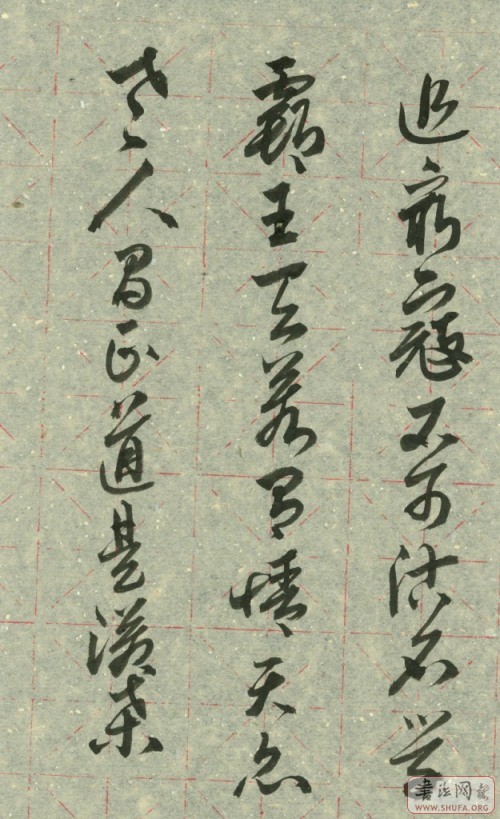 追穷寇不可沽名学
霸王天若有情天亦
老人间正道是沧桑
書法网
WWW.SHUFA.ORG